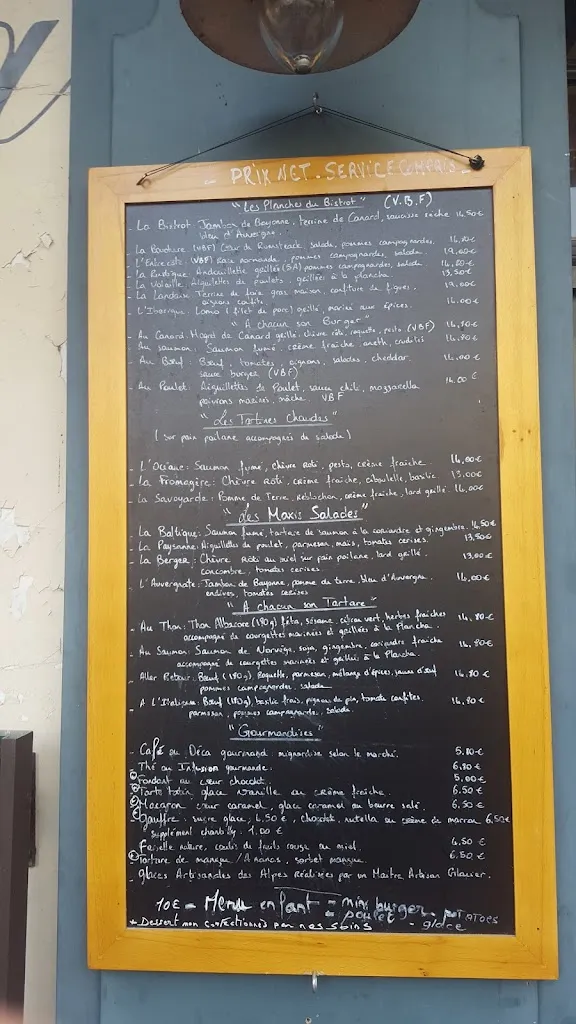 - PRIX NET - SERVICE COMPRIS -
"Les Planches du Bistrot" (V.B.F)
- Le Bistrot: Jambon de Bayonne, terrine de Canard, saucisse sèche 14,50€
bleu d'Auvergne.
- La Bordure (VBF) Cœur de Rumsteack, salade, pommes campagnardes.
- L'Entrecôte: (VBF) Race normande, pommes campagnardes, salade 19,00€
- La Rustique: Andouillette grillée (5A) pommes campagnardes, salade
- La Volaille: Aiguillettes de poulets, grillées à la plancha. 13,50€
- La Landaise: Terrine de foie gras maison, confiture de figues, 19,00€
oignons confits
- L'Ibérique: Lomo (filet de porc) grillé, mariné aux épices. 14,00€
"A chacun son Burger"
- Au Canard: Magret de Canard grillé, chèvre rôti, roquette, pesto. (VBF) 14,80€
- Au saumon: Saumon fumé, crème fraîche, aneth, crudités 14,80€
- Au Bœuf: Bœuf, tomates, oignons, salades, cheddar. 14,00€
sauce burger (VBF)
- Au Poulet: Aiguillettes de Poulet, sauce chili, mozzarella 14,00€
poivrons marinés, mâche. VBF
"Les Tartines Chaudes"
(sur pain poilane accompagnés de salade)
- L'Océane: Saumon fumé, chèvre rôti, pesto, crème fraîche 14,00€
- La Fromagère: Chèvre rôti, crème fraîche, ciboulette, basilic 13,00€
- La Savoyarde: Pomme de Terre, Reblochon, crème fraîche, lard grillé. 14,00€
"Les Maxis Salades"
- La Baltique: Saumon fumé, tartare de saumon à la coriandre et gingembre. 14,50€
- La Paysanne: Aiguillettes de poulet, parmesan, maïs, tomates cerises. 13,50€
- La Berger: Chèvre Rôti au miel sur pain poilane, lard grillé. 13,00€
concombre, tomates cerises
- L'Auvergnate: Jambon de Bayonne, pomme de terre, bleu d'Auvergne. 14,00€
endives, tomates cerises
"A chacun son Tartare"
- Au Thon: Thon Albacore (180g) féta, sésame, citron vert, herbes fraîches 14,80€
accompagné de courgettes marinées et grillées à la Plancha.
- Au Saumon: Saumon de Norvège, soja, gingembre, coriandre fraîche 14,80€
accompagné de courgettes marinées et grillées à la Plancha.
- Aller Retour: Bœuf (180g), Roquette, parmesan, mélange d'épices, jaune d'œuf 14,80€
pommes campagnardes, salade
- A L'Italienne: Bœuf (180g), basilic frais, pignon de pin, tomate confites, 14,80€
parmesan, pommes campagnardes, salade.
"Gourmandises"
- Café ou Déca gourmand mignardise selon le marché. 5,80€
- Thé ou Infusion gourmande. 6,80€
- Fondant au cœur chocolat. 5,00€
- Tarte tatin, glace vanille ou crème fraîche. 6,50€
- Macaron cœur caramel, glace caramel au beurre salé. 6,50€
- Gauffre: sucre glace, 4,50€, chocolat, nutella ou crème de marron 6,50€
supplément chantilly: 1,00€
- Faisselle nature, coulis de fruits rouge ou miel. 4,50€
- Tartare de mangue / Ananas, sorbet mangue. 6,50€
- Glaces Artisanales des Alpes Réalisées par un Maitre Artisan Glacier.
10€ - Menu enfant = mini burger - potatoes
= poulet - glace
* Dessert non confectionnés par nos soins